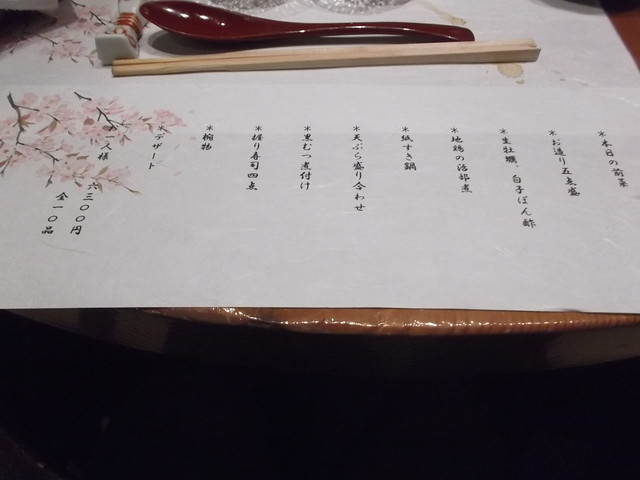 ＊本日の前菜
＊お造り五点盛
＊生牡蠣、白子ぽん酢
＊地鶏の治部煮
＊紙すき鍋
＊天ぷら盛り合わせ
＊黒むつ煮付け
＊握り寿司四点
＊椀物
＊デザート
お一人様 六三００円
全一０品